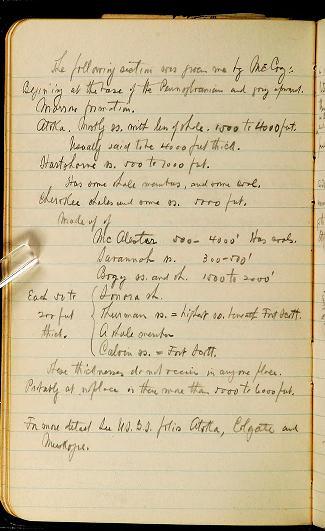 The following section was given me by McCoy:
Beginning at the base of the Pennsylvanian and going upward.
Morrow formation.
Atoka. Mostly ss. with len of shale. 1500 to 4000 feet.
Usually said to be 4000 feet thick.
Hartshorne ss. 500 to 1000 feet.
Has some shale members, and some coal.
Cherokee shales and some ss. 5000 feet.
Made up of
McAlester 500 - 4000' Has coals.
Savannah ss. 300-500'
Boggy ss. and sh. 1500 to 2000'
Each 50 to
200 feet
thick.
Senora sh.
Thurman ss. = highest ss. beneath Fort Scott.
A shale member
Calvin ss. = Fort Scott.
These thicknesses do not occur in any one place.
Probably at no place is there more than 5000 to 6000 feet.
For more detail see U.S.G.S. folios Atoka, Colgate and
Muskogee.